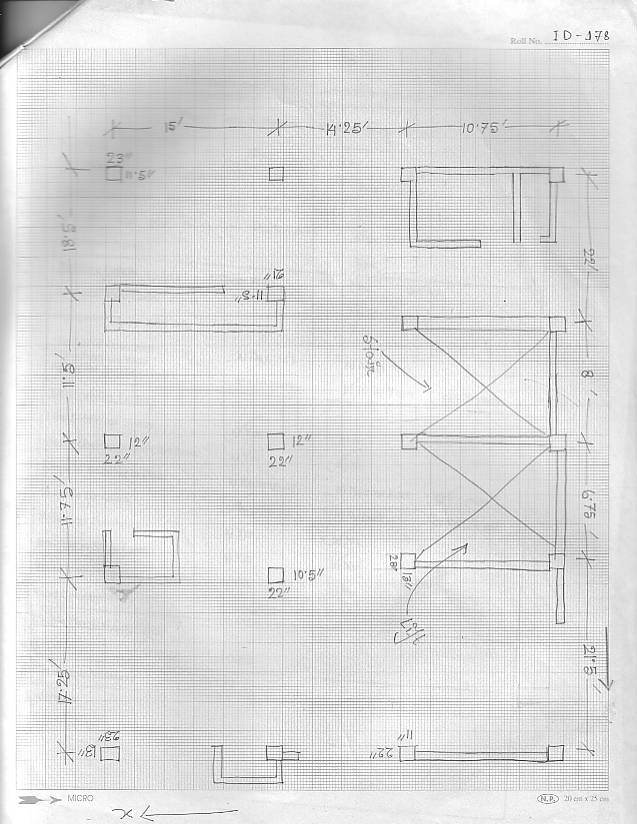 Roll No. ID-178
15' 14.25' 10.75'
23"
11.5"
18.5'
22'
21"
11.5"
Stair
11.5'
8'
12" 12"
22" 22"
11.75'
6.75'
28"
13"
10.5"
22"
Lift
21.5'
17.25'
23"
13"
11"
22"
MICRO
N.P. 20 cm x 25 cm
x